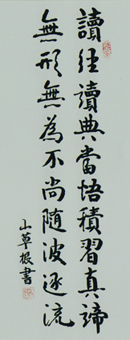 讀經讀典當悟積習真諦
無形無為不尚随波逐流
山草根書